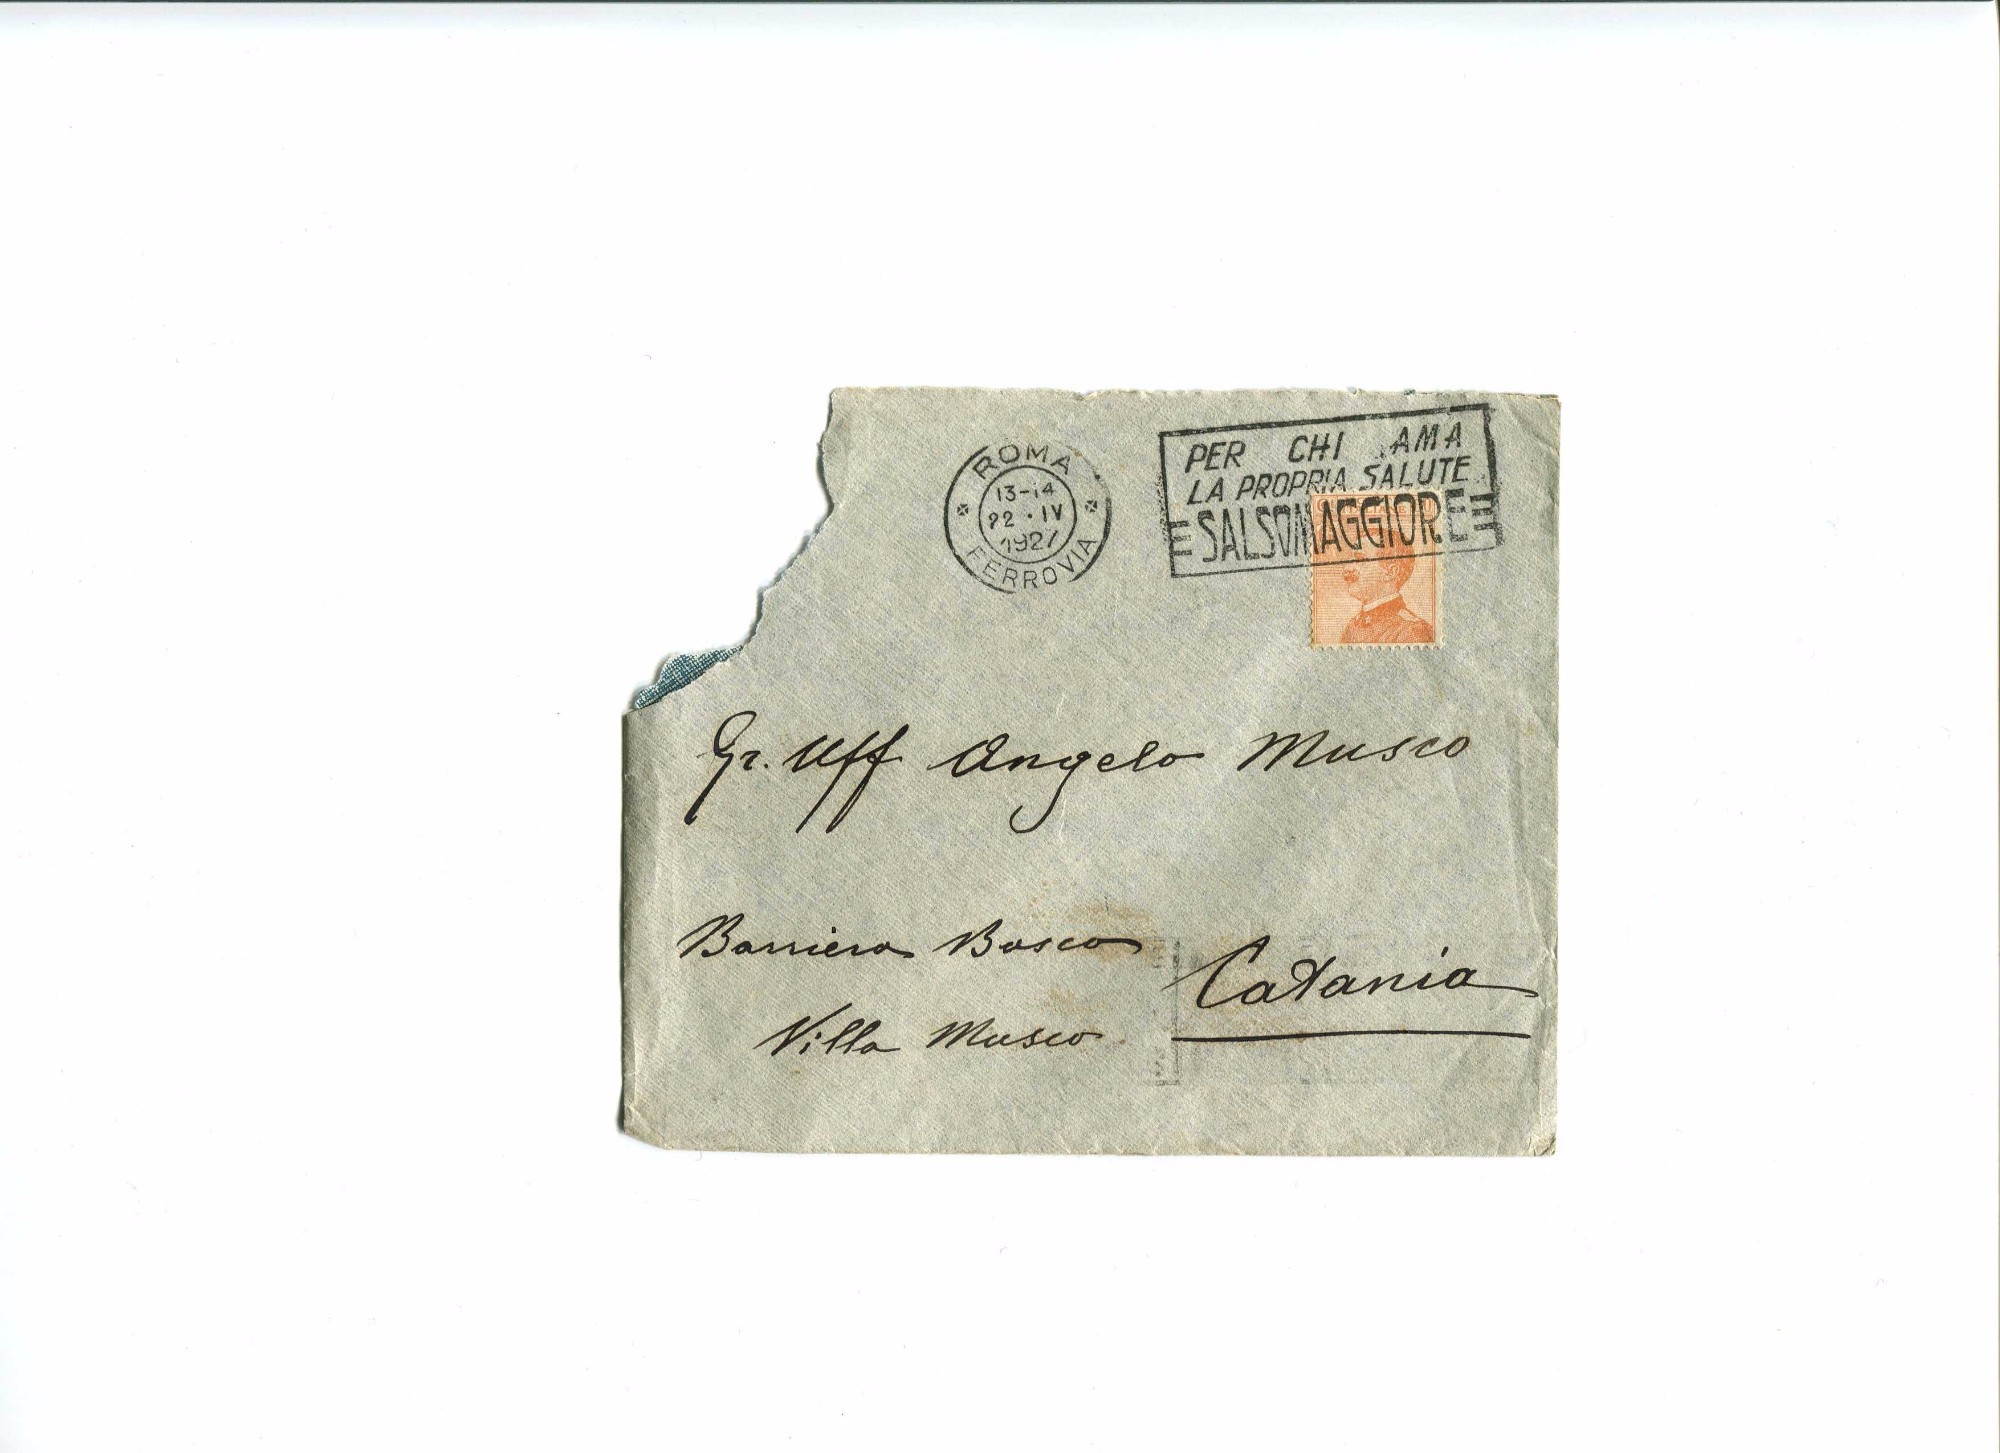 ROMA
13-14
22·IV
1927
FERROVIA
PER CHI AMA
LA PROPRIA SALUTE
SALSOMAGGIORE
Gr. Uff Angelo Musco
Barriera Bosco
Catania
Villa Musco